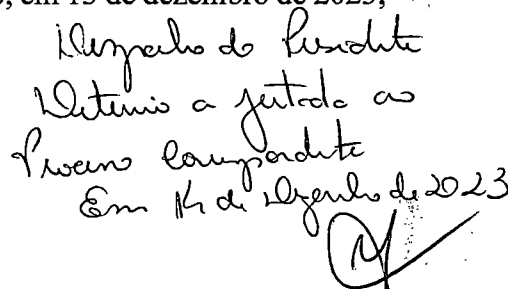 , em 13 de dezembro de 2023,
Despacho do Presidente
Determino a juntada ao
Processo correspondente
Em 14 de Dezembro de 2023